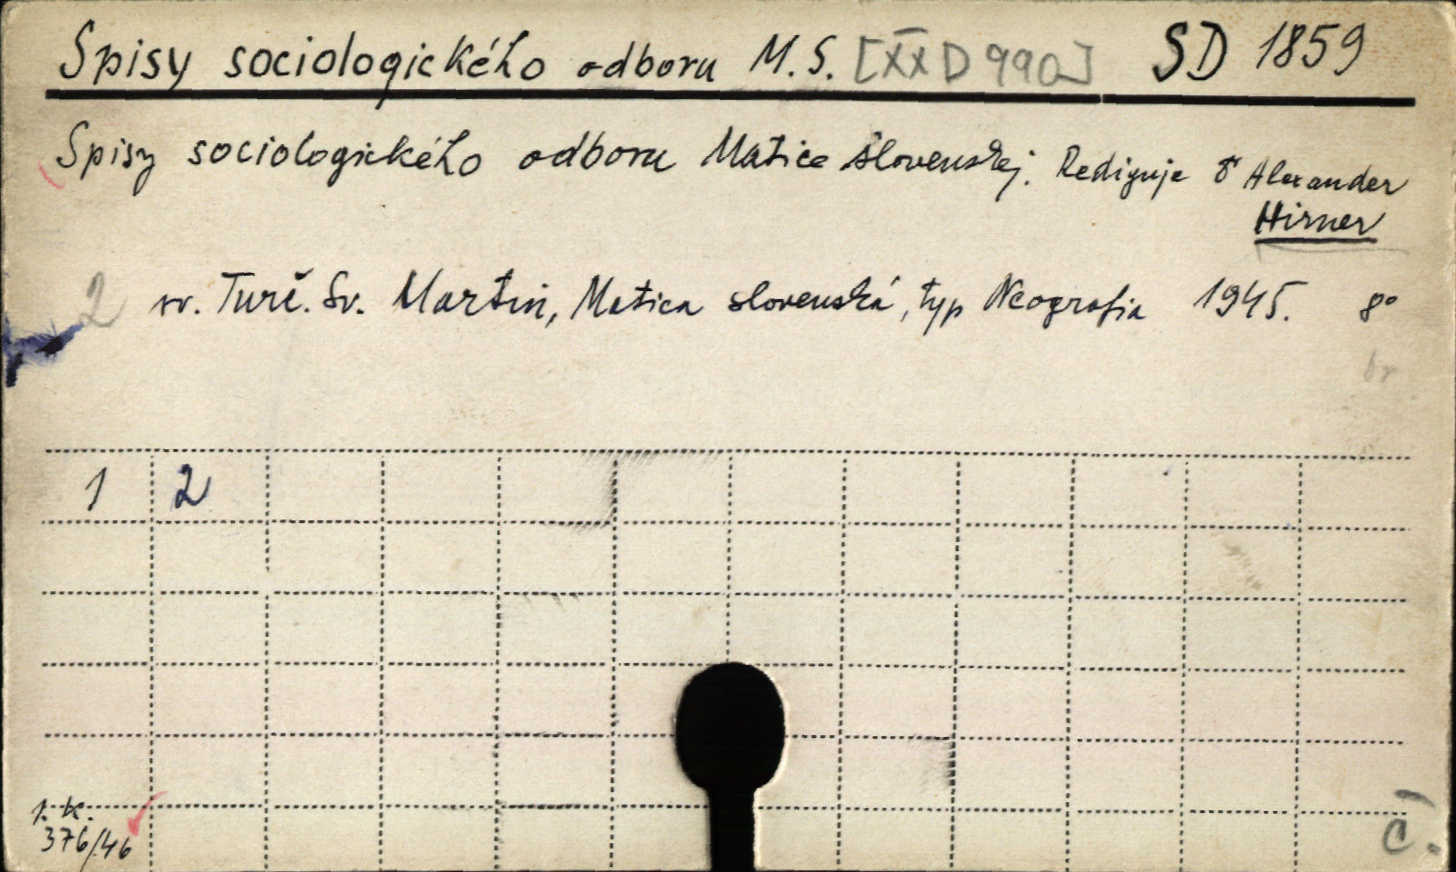 Spisy sociologického odboru M.S. [XX D 990] SD 1859
Spisy sociologického odboru Matice slovenskej. Rediguje Alexander
Hirner
2 sv. Turč. Sv. Martin, Matica slovenská, typ Neografia 1945. 8°
br
1 2
1. K.
376/46
č.